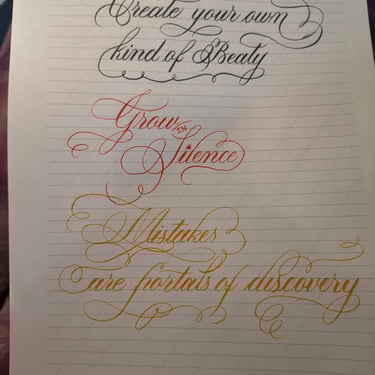 Create your own
kind of Beaty
Grow in
Silence
Mistakes
are portals of discovery